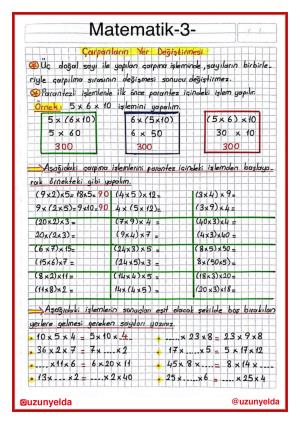 Matematik-3-
Çarpanların Yer Değiştirmesi
Üç doğal sayı ile yapılan çarpma işleminde, sayıların birbirle-
riyle çarpılma sırasının değişmesi sonucu değiştirmez.
Parantezli işlemlerde ilk önce parantez içindeki işlem yapılır.
Örnek: 5 x 6 x 10 işlemini yapalım.
5 x (6x10) 6 x (5x10) (5x6) x 10
5 x 60 6 x 50 30 x 10
300 300 300
Aşağıdaki çarpma işlemlerini parantez içindeki işlemden başlaya-
rak örnekteki gibi yapalım.
(9x2)x5=18x5=90 (4x5)x12= (3x4)x9=
9x(2x5)=9x10=90 4x(5x12)= (3x9)x4=
(20x2)x3= (7x9)x4= (40x3)x4=
20x(2x3)= (9x4)x7= (4x3)x40=
(6x7)x15= (24x3)x5= (8x5)x50=
(15x6)x7= (24x5)x3= 8x(50x5)=
(8x2)x11= (14x4)x5= (18x3)x20=
(11x8)x2= 14x(4x5)= (20x3)x18=
Aşağıdaki işlemlerin sonuçları eşit olacak şekilde boş bırakılan
yerlere gelmesi gereken sayıları yazınız.
10 x 5 x 4 = 5 x 10 x 4 ..... x 23 x 8 = 23 x 9 x 8
36 x 2 x 7 = 7 x ..... x 2 17 x ..... x 5 = 5 x 17 x 12
..... x 11 x 6 = 6 x 20 x 11 45 x 8 x ..... = 8 x 14 x .....
13 x ..... x 2 = ..... x 2 x 40 25 x ..... x 6 = ..... x 25 x 4
@uzunyelda @uzunyelda